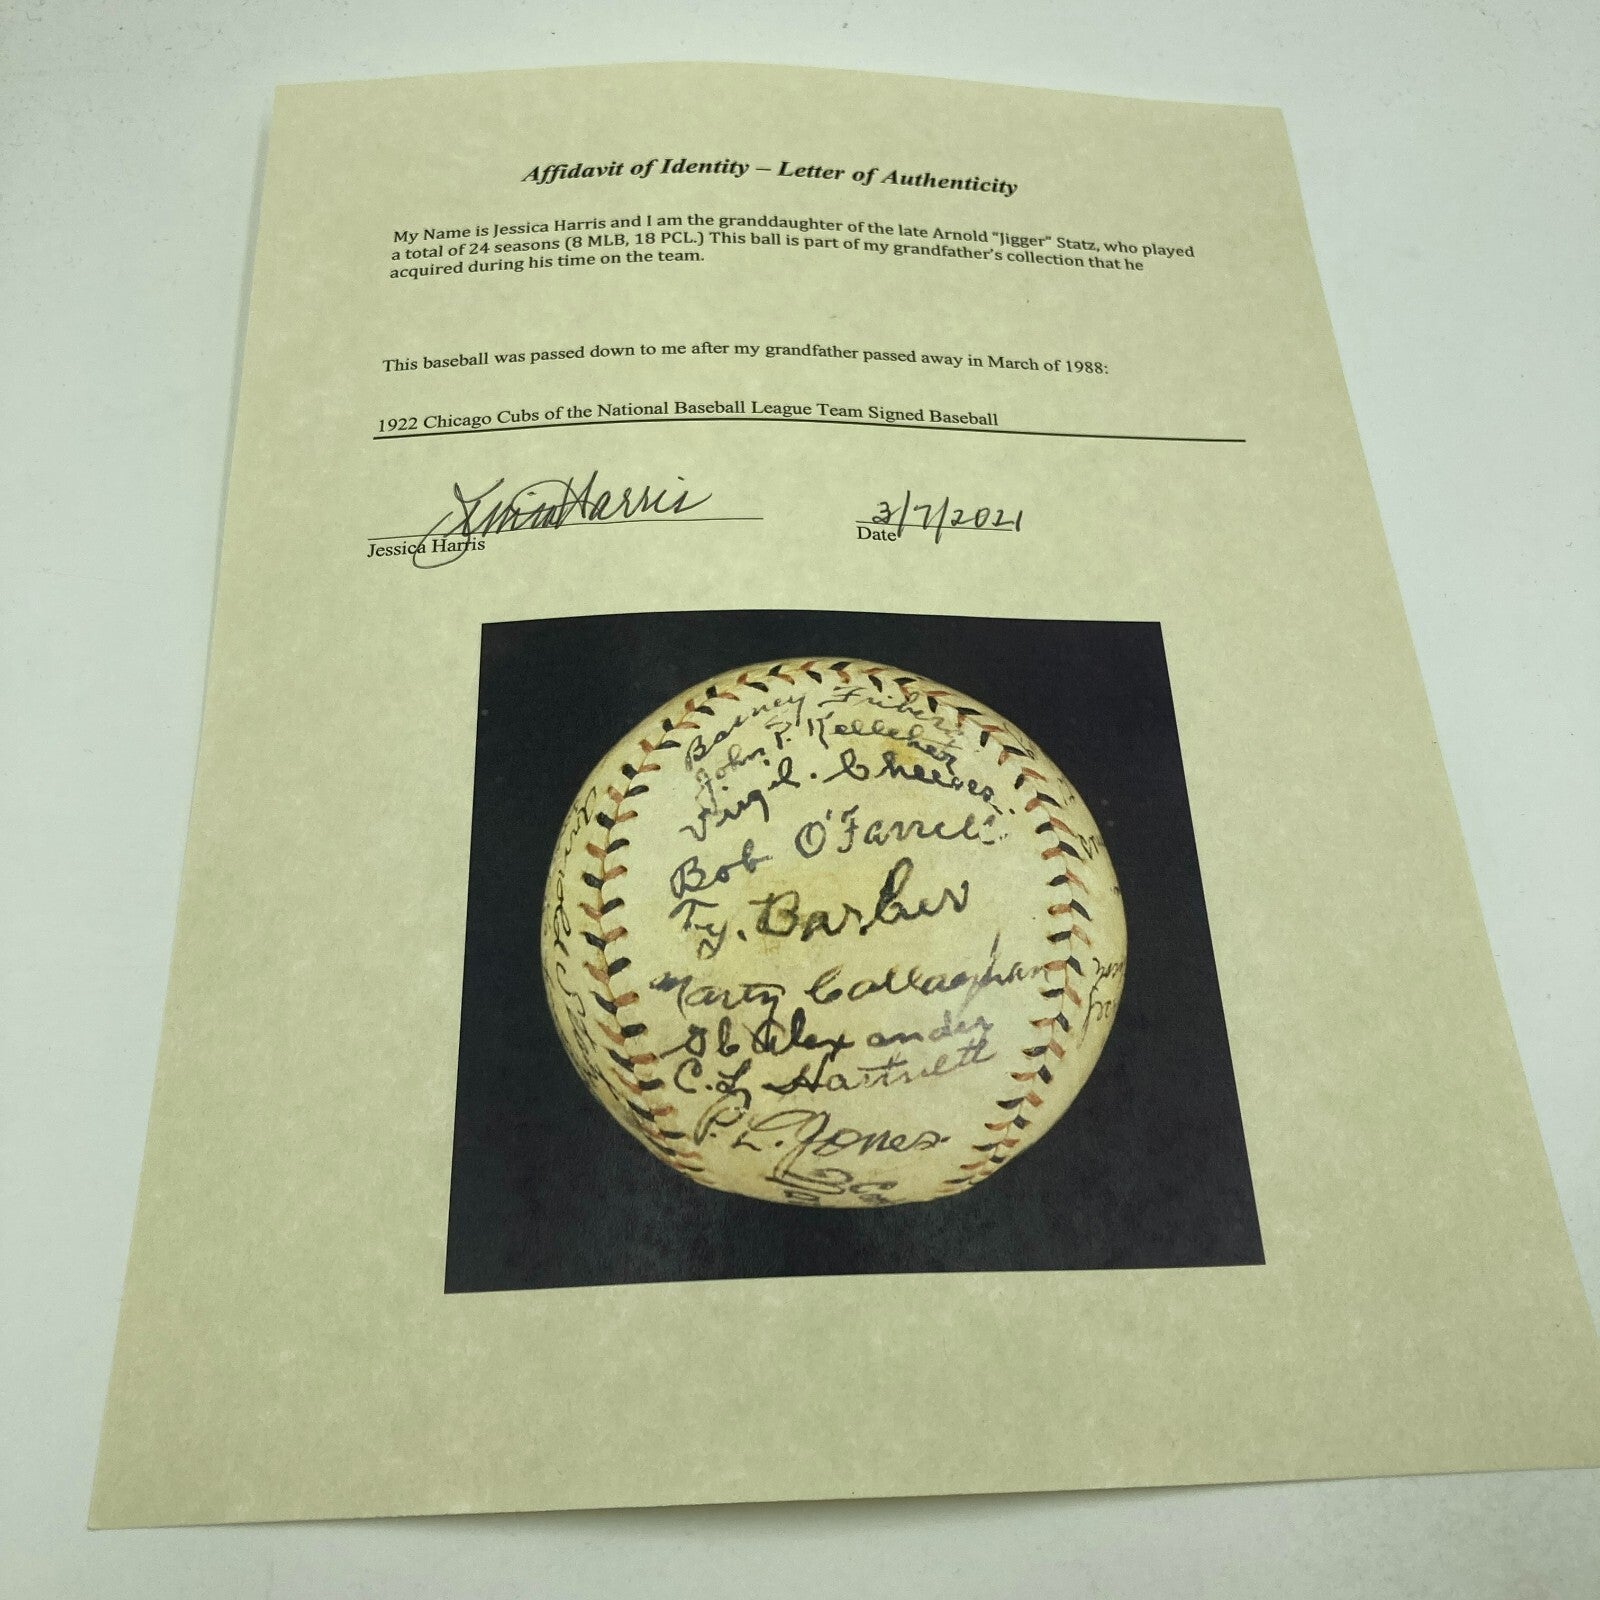 Affidavit of Identity – Letter of Authenticity
My Name is Jessica Harris and I am the granddaughter of the late Arnold "Jigger" Statz, who played
a total of 24 seasons (8 MLB, 18 PCL.) This ball is part of my grandfather's collection that he
acquired during his time on the team.
This baseball was passed down to me after my grandfather passed away in March of 1988:
1922 Chicago Cubs of the National Baseball League Team Signed Baseball
Jessica Harris 3/7/2021
Jessica Harris Date
Barney Friberg
John P. Kelleher
Virgil. Cheeves.
Bob O'Farrell
Ty. Barber
Marty Callaghan
Alexander
C. L. Hartnett
P. L. Jones.
Arnold Statz